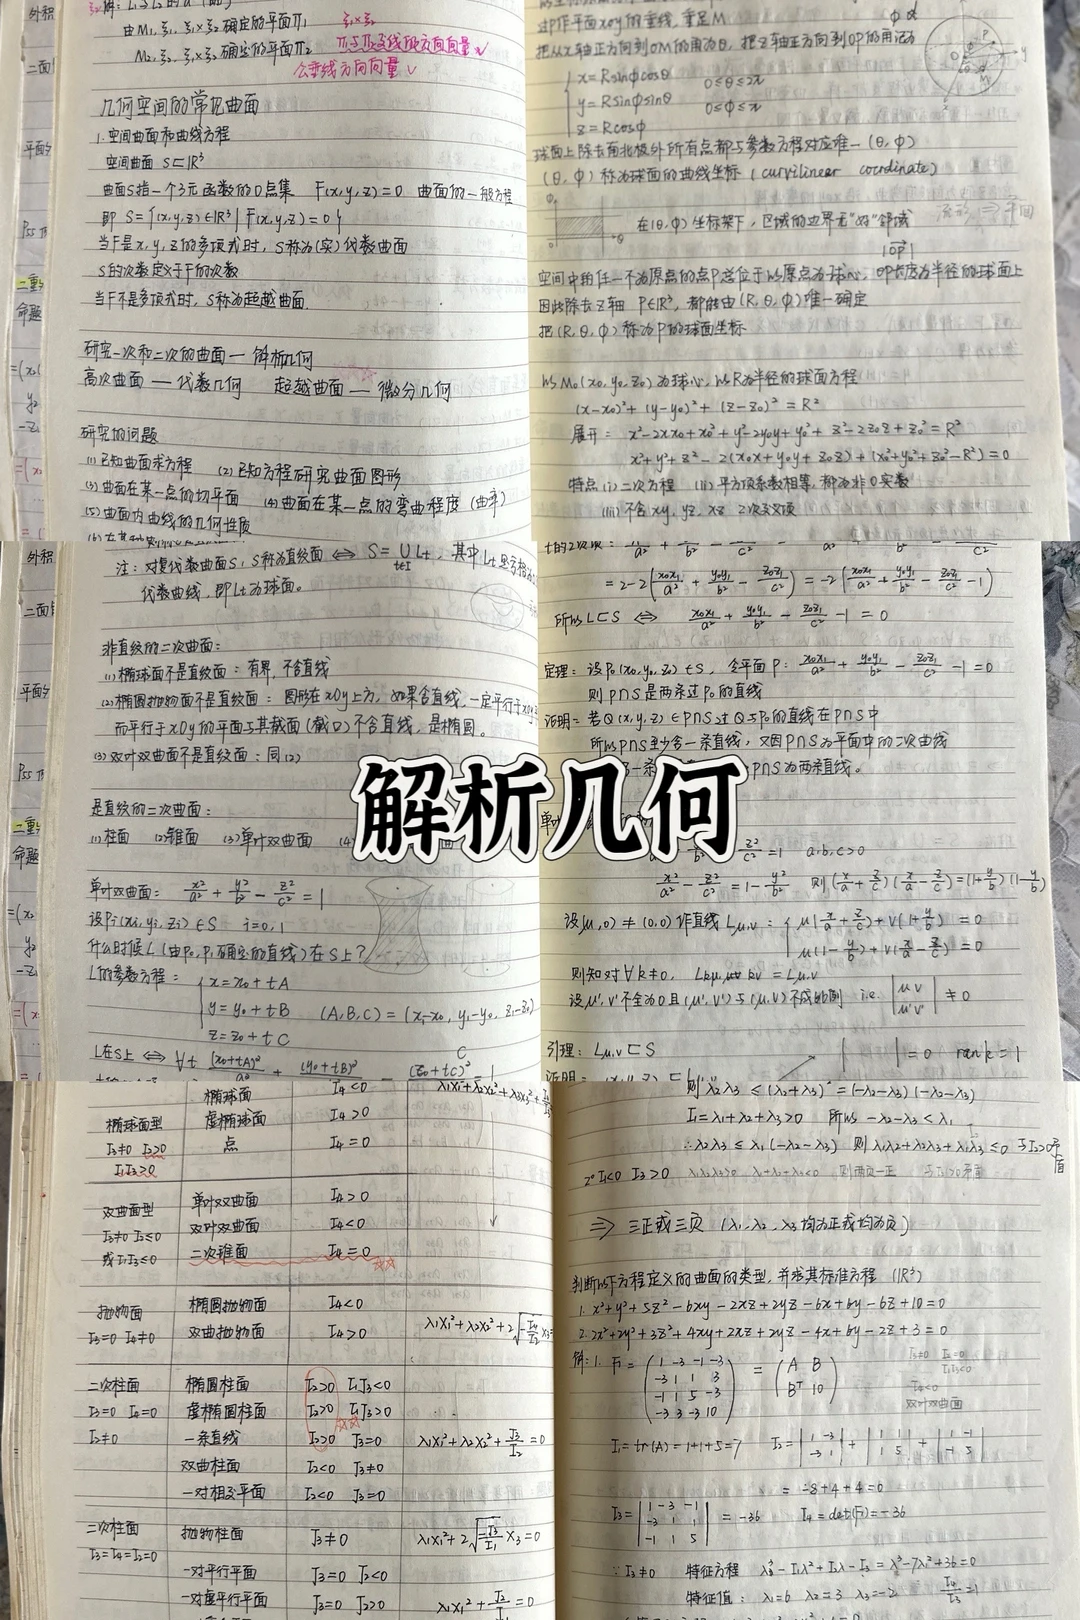 解析几何
由M₁, ξ₁, ξ₁×ξ₂确定的平面π₁
M₂, ξ₂, ξ₁×ξ₂确定的平面π₂
ξ₁×ξ₂
π₁与π₂交线的方向向量√
公垂线方向向量√
几何空间的常见曲面
1. 空间曲面和曲线方程
空间曲面 S⊂ℝ³
曲面S指一个3元函数的0点集 F(x,y,z)=0 曲面的一般方程
即 S={(x,y,z)∈ℝ³|F(x,y,z)=0}
当F是x,y,z的多项式时, S称为(实)代数曲面
S的次数定义于F的次数
当F不是多项式时, S称为超越曲面
研究一次和二次的曲面—解析几何
高次曲面—代数几何 超越曲面—微分几何
研究的问题
(1)已知曲面求方程 (2)已知方程研究曲面图形
(3)曲面在某一点的切平面 (4)曲面在某一点的弯曲程度(曲率)
(5)曲面内曲线的几何性质
即作平面xoy的垂线, 垂足M
把从x轴正方向到OM的角为θ, 把z轴正方向到OP的角记为
x=Rsinφcosθ 0≤θ≤2π
y=Rsinφsinθ 0≤φ≤π
z=Rcosφ
球面上除去南北极外所有点都与参数方程对应唯一(θ,φ)
(θ,φ)称为球面的曲线坐标(curvilinear coordinate)
在(θ,φ)坐标架下, 区域的边界无"好"邻域
|OP|
空间中的任一不为原点的点P总位于以原点为球心, |OP|长度为半径的球面上
因此除去z轴 P∈ℝ³, 都能由(R,θ,φ)唯一确定
把(R,θ,φ)称为P的球面坐标
以M₀(x₀,y₀,z₀)为球心, 以R为半径的球面方程
(x-x₀)²+(y-y₀)²+(z-z₀)²=R²
展开: x²-2xx₀+x₀²+y²-2y₀y+y₀²+z²-2z₀z+z₀²=R²
x²+y²+z²-2(x₀x+y₀y+z₀z)+(x₀²+y₀²+z₀²-R²)=0
特点(i)二次方程 (ii)平方项系数相等, 都为非0实数
(iii)不含xy, yz, xz 2次交叉项
注: 对复代数曲面S, S称为直纹面⇔S=∪Lt, 其中Lt
t∈I
代数曲线, 即Lt为球面。
非直纹的二次曲面:
(1)椭球面不是直纹面: 有界, 不含直线
(2)椭圆抛物面不是直纹面: 图形在xOy上方, 如果含直线, 一定平行于xOy
而平行于xOy的平面与其截面(截口)不含直线, 是椭圆。
(3)双叶双曲面不是直纹面: 同(2)
是直纹的二次曲面:
(1)柱面 (2)锥面 (3)单叶双曲面 (4
单叶双曲面: x²/a²+y²/b²-z²/c²=1
设Pi(xi,yi,zi)∈S i=0,1
什么时候L(由P₀,P₁确定的直线)在S上?
L的参数方程:
x=x₀+tA
y=y₀+tB (A,B,C)=(x₁-x₀, y₁-y₀, z₁-z₀)
z=z₀+tC
L在S上⇔∀t (x₀+tA)²/a²+(y₀+tB)²
=2-2(x₀x₁/a²+y₀y₁/b²-z₀z₁/c²)=-2(x₀x₁/a²+y₀y₁/b²-z₀z₁/c²-1)
所以L⊂S⇔x₀x₁/a²+y₀y₁/b²-z₀z₁/c²-1=0
定理: 设P₀(x₀,y₀,z₀)∈S, 令平面P: x₀x₁/a²+y₀y₁/b²-z₀z₁/c²-1=0
则P∩S是两条过P₀的直线
证明: 若Q(x,y,z)∈P∩S过Q与P₀的直线在P∩S中
所以P∩S至少含一条直线, 又因P∩S为平面中的二次曲线
P∩S为两条直线。
z²/c²=1 a,b,c>0
x²/a²-z²/c²=1-y²/b² 则(x/a+z/c)(x/a-z/c)=(1+y/b)(1-y/b)
设(μ,ν)≠(0,0)作直线Lμ,ν:
μ(x/a+z/c)+ν(1+y/b)=0
μ(1-y/b)+ν(x/a-z/c)=0
则知对∀k≠0, Lkμ,kν=Lμ,ν
设μ',ν'不全为0且(μ',ν')与(μ,ν)不成比例 i.e. |μ ν; μ' ν'|≠0
引理: Lμ,ν⊂S
=0 rank=1
椭球面型 椭球面 I₄<0
I₃≠0 I₂>0 虚椭球面 I₄>0
I₁I₃>0 点 I₄=0
双曲面型 单叶双曲面 I₄>0
I₃≠0 I₂≤0 双叶双曲面 I₄<0
或I₁I₃≤0 二次锥面 I₄=0
抛物面 椭圆抛物面 I₄<0
I₃=0 I₄≠0 双曲抛物面 I₄>0
二次柱面 椭圆柱面 I₂>0 I₁J₃<0
I₃=0 I₄=0 虚椭圆柱面 I₂>0 I₁J₃>0
I₂≠0 一条直线 I₂>0 J₃=0 λ₁x₁²+λ₂x₂²+J₃/I₂=0
双曲柱面 I₂<0 J₃≠0
一对相交平面 I₂<0 J₃=0
二次柱面 抛物柱面 J₃≠0 λ₁x₁²+2√(-J₃/I₁)x₃=0
I₃=I₄=I₂=0
一对平行平面 J₃=0 J₂<0
一对虚平行平面 J₃=0 J₂>0 λ₁x₁²+J₂/I₁=0
则λ₂λ₃≤(λ₂+λ₃)²=(-λ₂-λ₃)(-λ₂-λ₃)
I₁=λ₁+λ₂+λ₃>0 所以-λ₂-λ₃<λ₁
∴λ₂λ₃≤λ₁(-λ₂-λ₃) 则λ₁λ₂+λ₂λ₃+λ₁λ₃≤0 与I₂>0矛盾
2° I₁<0 I₃>0 λ₁λ₂λ₃>0 λ₁+λ₂+λ₃<0 则两负一正 与I₂>0矛盾
⇒三正或三负(λ₁,λ₂,λ₃均为正或均为负)
判断以下方程定义的曲面的类型, 并求其标准方程(ℝ³)
1. x²+y²+5z²-6xy-2xz+2yz-6x+6y-6z+10=0
2. 2x²+2y²+3z²+4xy+2xz+2yz-4x+6y-2z+3=0
解: 1. F₁=(1 -3 -1 -3; -3 1 1 3; -1 1 5 -3; -3 3 -3 10)=(A B; Bᵀ 10)
I₄<0
双叶双曲面
I₁=tr(A)=1+1+5=7 I₂=|1 -3; -3 1|+|1 1; 1 5|+|1 -1; -1 5|
=-8+4+4=0
I₃=|1 -3 -1; -3 1 1; -1 1 5|=-36 I₄=det(F₁)=-36
∵I₃≠0 特征方程 λ³-I₁λ²+I₂λ-I₃=λ³-7λ²+36=0
特征值: λ₁=6 λ₂=3 λ₃=-2 I₄/I₃=1